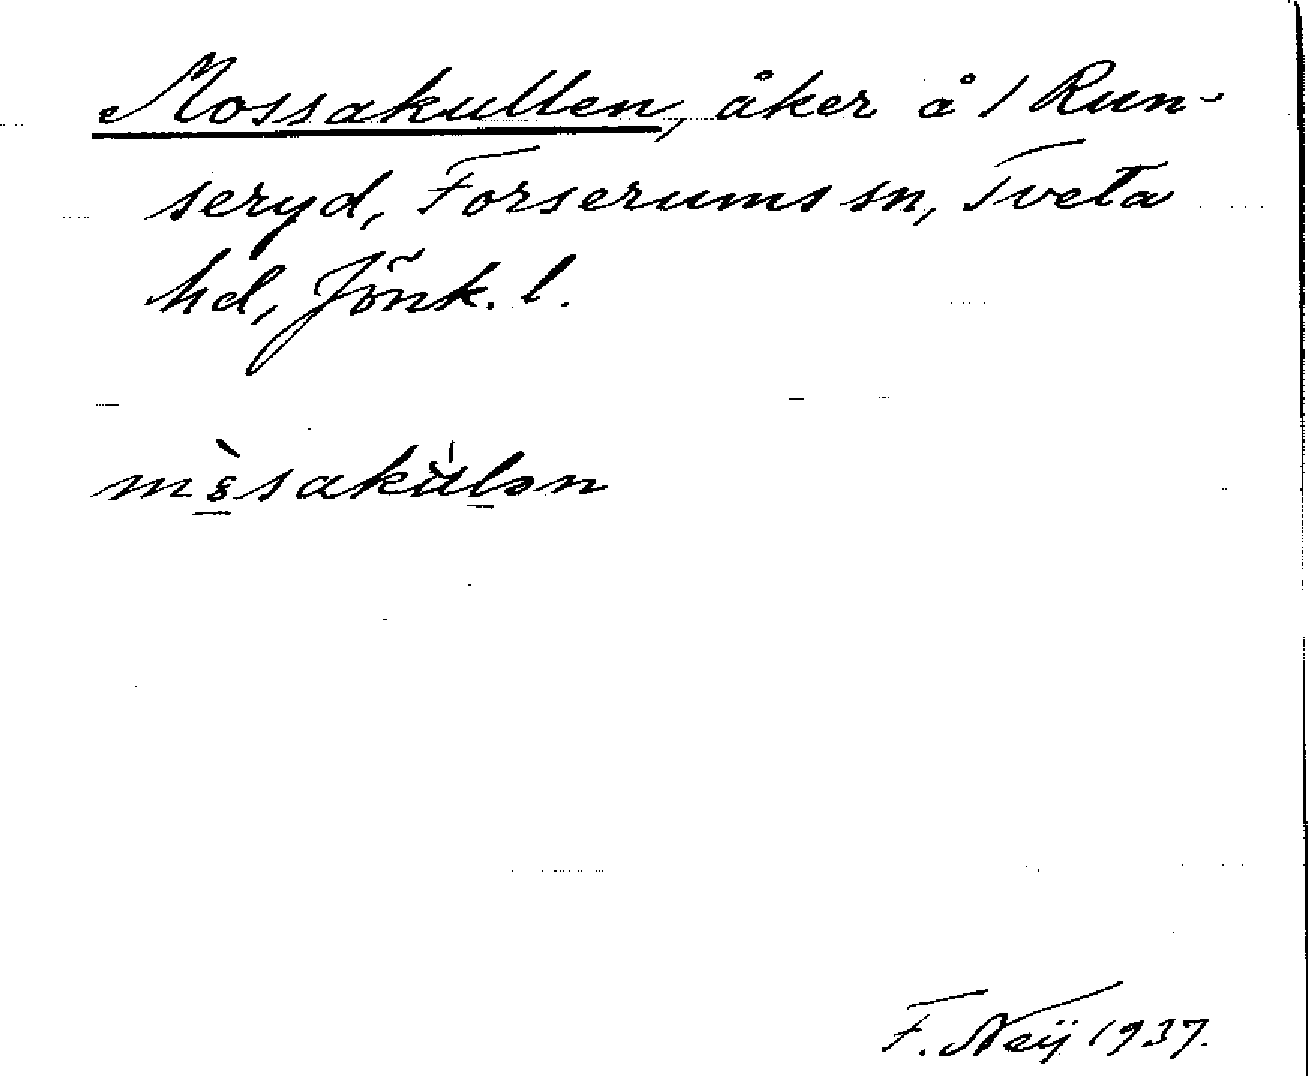 Mossakullen, åker å 1 Run-
seryd, Forserums sn, Tveta
hd, Jönk. l.
F. Neÿ 1937.